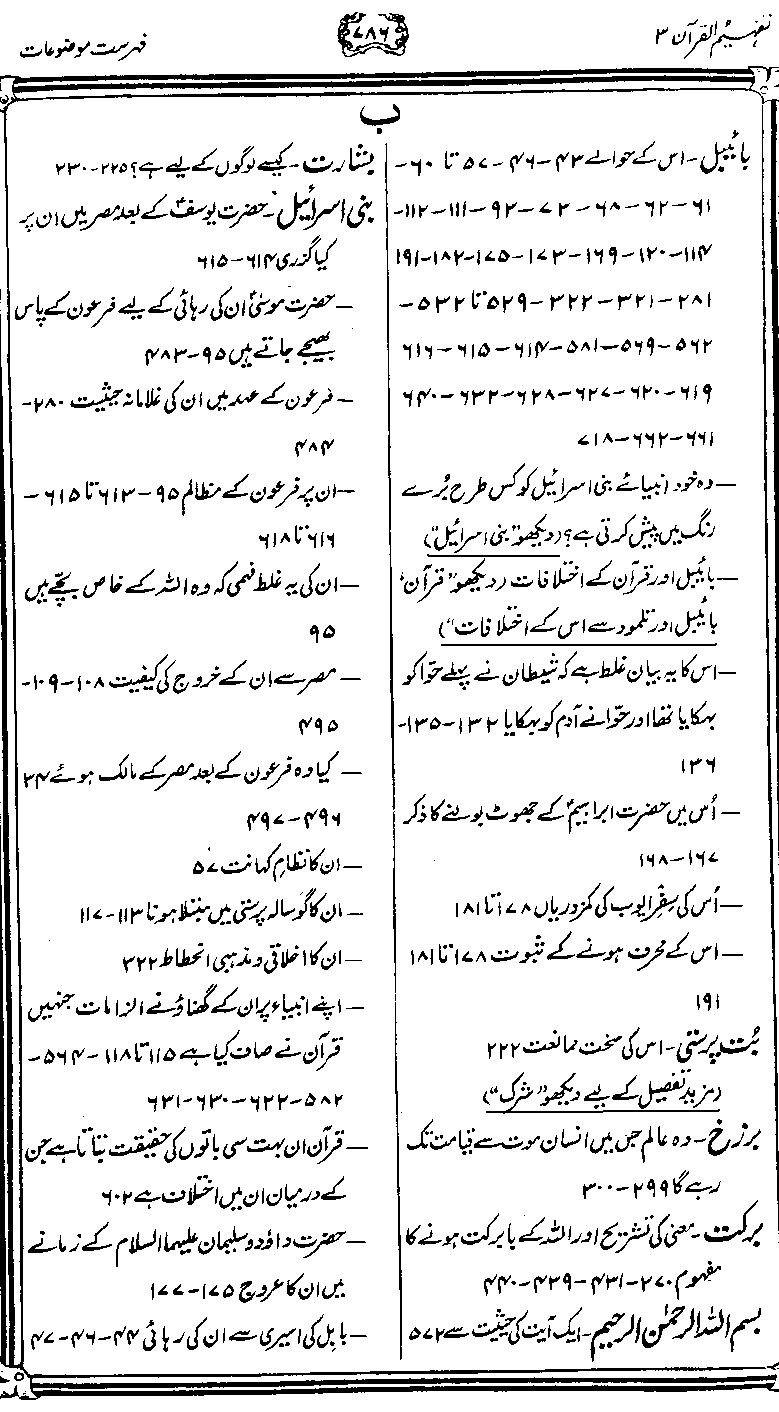 تفہیم القرآن ۳
۷۸۶
فہرست موضوعات
ب
بائیبل - اس کے حوالے ۴۳ - ۴۶ - ۵۷ تا ۶۰ -
۶۱ - ۶۲ - ۶۸ - ۷۲ - ۹۲ - ۱۱۱ - ۱۱۲ -
۱۱۴ - ۱۲۰ - ۱۶۹ - ۱۷۳ - ۱۷۵ - ۱۸۲ - ۱۹۱
۲۸۱ - ۳۲۱ - ۳۲۲ - ۵۲۹ تا ۵۳۲ -
۵۶۲ - ۵۶۹ - ۵۸۱ - ۶۱۴ - ۶۱۵ - ۶۱۶
۶۱۹ - ۶۲۰ - ۶۲۷ - ۶۲۸ - ۶۳۲ - ۶۴۰
۶۶۱ - ۶۶۲ - ۷۱۸
— وہ خود انبیائے بنی اسرائیل کو کس طرح بُرے
رنگ میں پیش کرتی ہے؟ (دیکھو "بنی اسرائیل")
— بائیبل اور قرآن کے اختلافات (دیکھو "قرآن"
بائیبل اور تلمود سے اس کے اختلافات")
— اس کا یہ بیان غلط ہے کہ شیطان نے پہلے حوّا کو
بہکایا تھا اور حوّا نے آدم کو بہکایا ۱۳۲ - ۱۳۵ -
۱۳۶
— اُس میں حضرت ابراہیمؑ کے جھوٹ بولنے کا ذکر
۱۶۷ - ۱۶۸
— اُس کی سِفرِ ایوب کی کمزوریاں ۱۷۸ تا ۱۸۱
— اس کے محرف ہونے کے ثبوت ۱۷۸ تا ۱۸۱
۱۹۱
بُت پرستی - اس کی سخت ممانعت ۲۲۲
(مزید تفصیل کے لیے دیکھو "شرک")
برزخ - وہ عالم جس میں انسان موت سے قیامت تک
رہے گا ۲۹۹ - ۳۰۰
برکت - معنی کی تشریح اور اللہ کے بابرکت ہونے کا
مفہوم ۲۷۰ - ۴۳۱ - ۴۳۹ - ۴۴۰
بسم اللہ الرحمٰن الرحیم - ایک آیت کی حیثیت سے ۵۷۲
بشارت - کیسے لوگوں کے لیے ہے؟ ۲۲۵ - ۲۳۰
بنی اسرائیل - حضرت یوسفؑ کے بعد مصر میں ان پر
کیا گزری ۶۱۴ - ۶۱۵
— حضرت موسیٰؑ ان کی رہائی کے لیے فرعون کے پاس
بھیجے جاتے ہیں ۹۵ - ۴۸۳
— فرعون کے عہد میں ان کی غلامانہ حیثیت ۲۸۰ -
۴۸۴
— ان پر فرعون کے مظالم ۹۵ - ۶۱۳ تا ۶۱۵ -
۶۱۶ تا ۶۱۸
— ان کی یہ غلط فہمی کہ وہ اللہ کے خاص بچے ہیں
۹۵
— مصر سے ان کے خروج کی کیفیت ۱۰۸ - ۱۰۹ -
۴۹۵
— کیا وہ فرعون کے بعد مصر کے مالک ہوئے ۳۴
۴۹۶ - ۴۹۷
— ان کا نظامِ کہانت ۵۷
— ان کا گوسالہ پرستی میں مبتلا ہونا ۱۱۳ - ۱۱۷
— ان کا اخلاقی و مذہبی انحطاط ۳۲۲
— اپنے انبیاء پر ان کے گھناؤنے الزامات جنہیں
قرآن نے صاف کیا ہے ۱۱۵ تا ۱۱۸ - ۵۶۴ -
۵۸۲ - ۶۲۲ - ۶۳۰ - ۶۳۱
— قرآن ان بہت سی باتوں کی حقیقت بتاتا ہے جن
کے درمیان ان میں اختلاف ہے ۶۰۲
— حضرت داؤد و سلیمان علیہما السلام کے زمانے
میں ان کا عروج ۱۷۵ - ۱۷۷
— بابل کی اسیری سے ان کی رہائی ۴۴ - ۴۶ - ۴۷